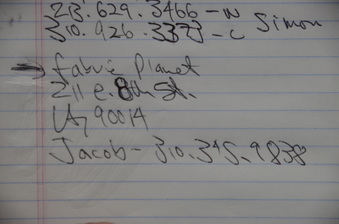 213.629.3466 - W
310.926.3373 - C Simon
→ Fabric Planet
211 e. 8th St.
LA, 90014
Jacob - 310.345.9838